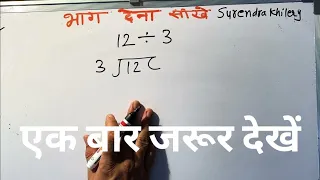 भाग देना सीखे Surendra Khilery
12 ÷ 3
3 √12 (
एक बार जरूर देखें